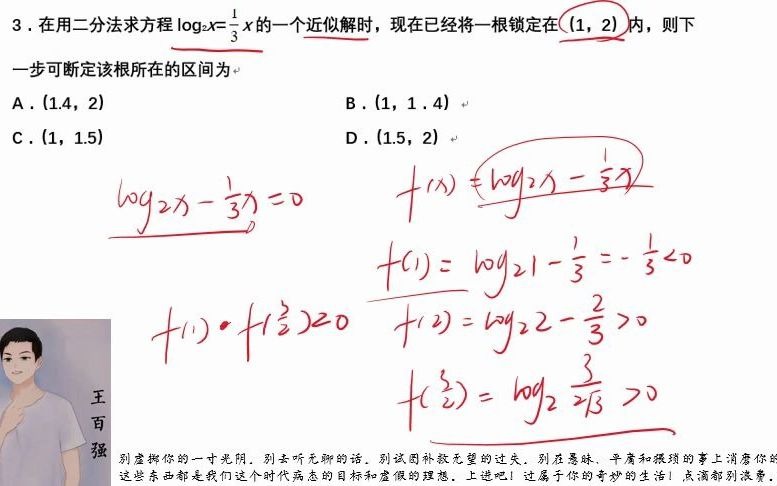 3．在用二分法求方程 log₂x=1/3 x 的一个近似解时，现在已经将一根锁定在（1，2）内，则下
一步可断定该根所在的区间为
A．(1.4，2)
B．(1，1．4)
C．(1，1.5)
D．(1.5，2)
log₂x − 1/3 x = 0
f(x) = log₂x − 1/3 x
f(1) = log₂1 − 1/3 = − 1/3 < 0
f(1)·f(3/2)<0
f(2) = log₂2 − 2/3 > 0
f(3/2) = log₂ 3/(2√3) > 0
王百强
别虚掷你的一寸光阴。别去听无聊的话。别试图补救无望的过失。别在愚昧、平庸和猥琐的事上消磨你的
这些东西都是我们这个时代病态的目标和虚假的理想。上进吧！过属于你的奇妙的生活！点滴都别浪费。